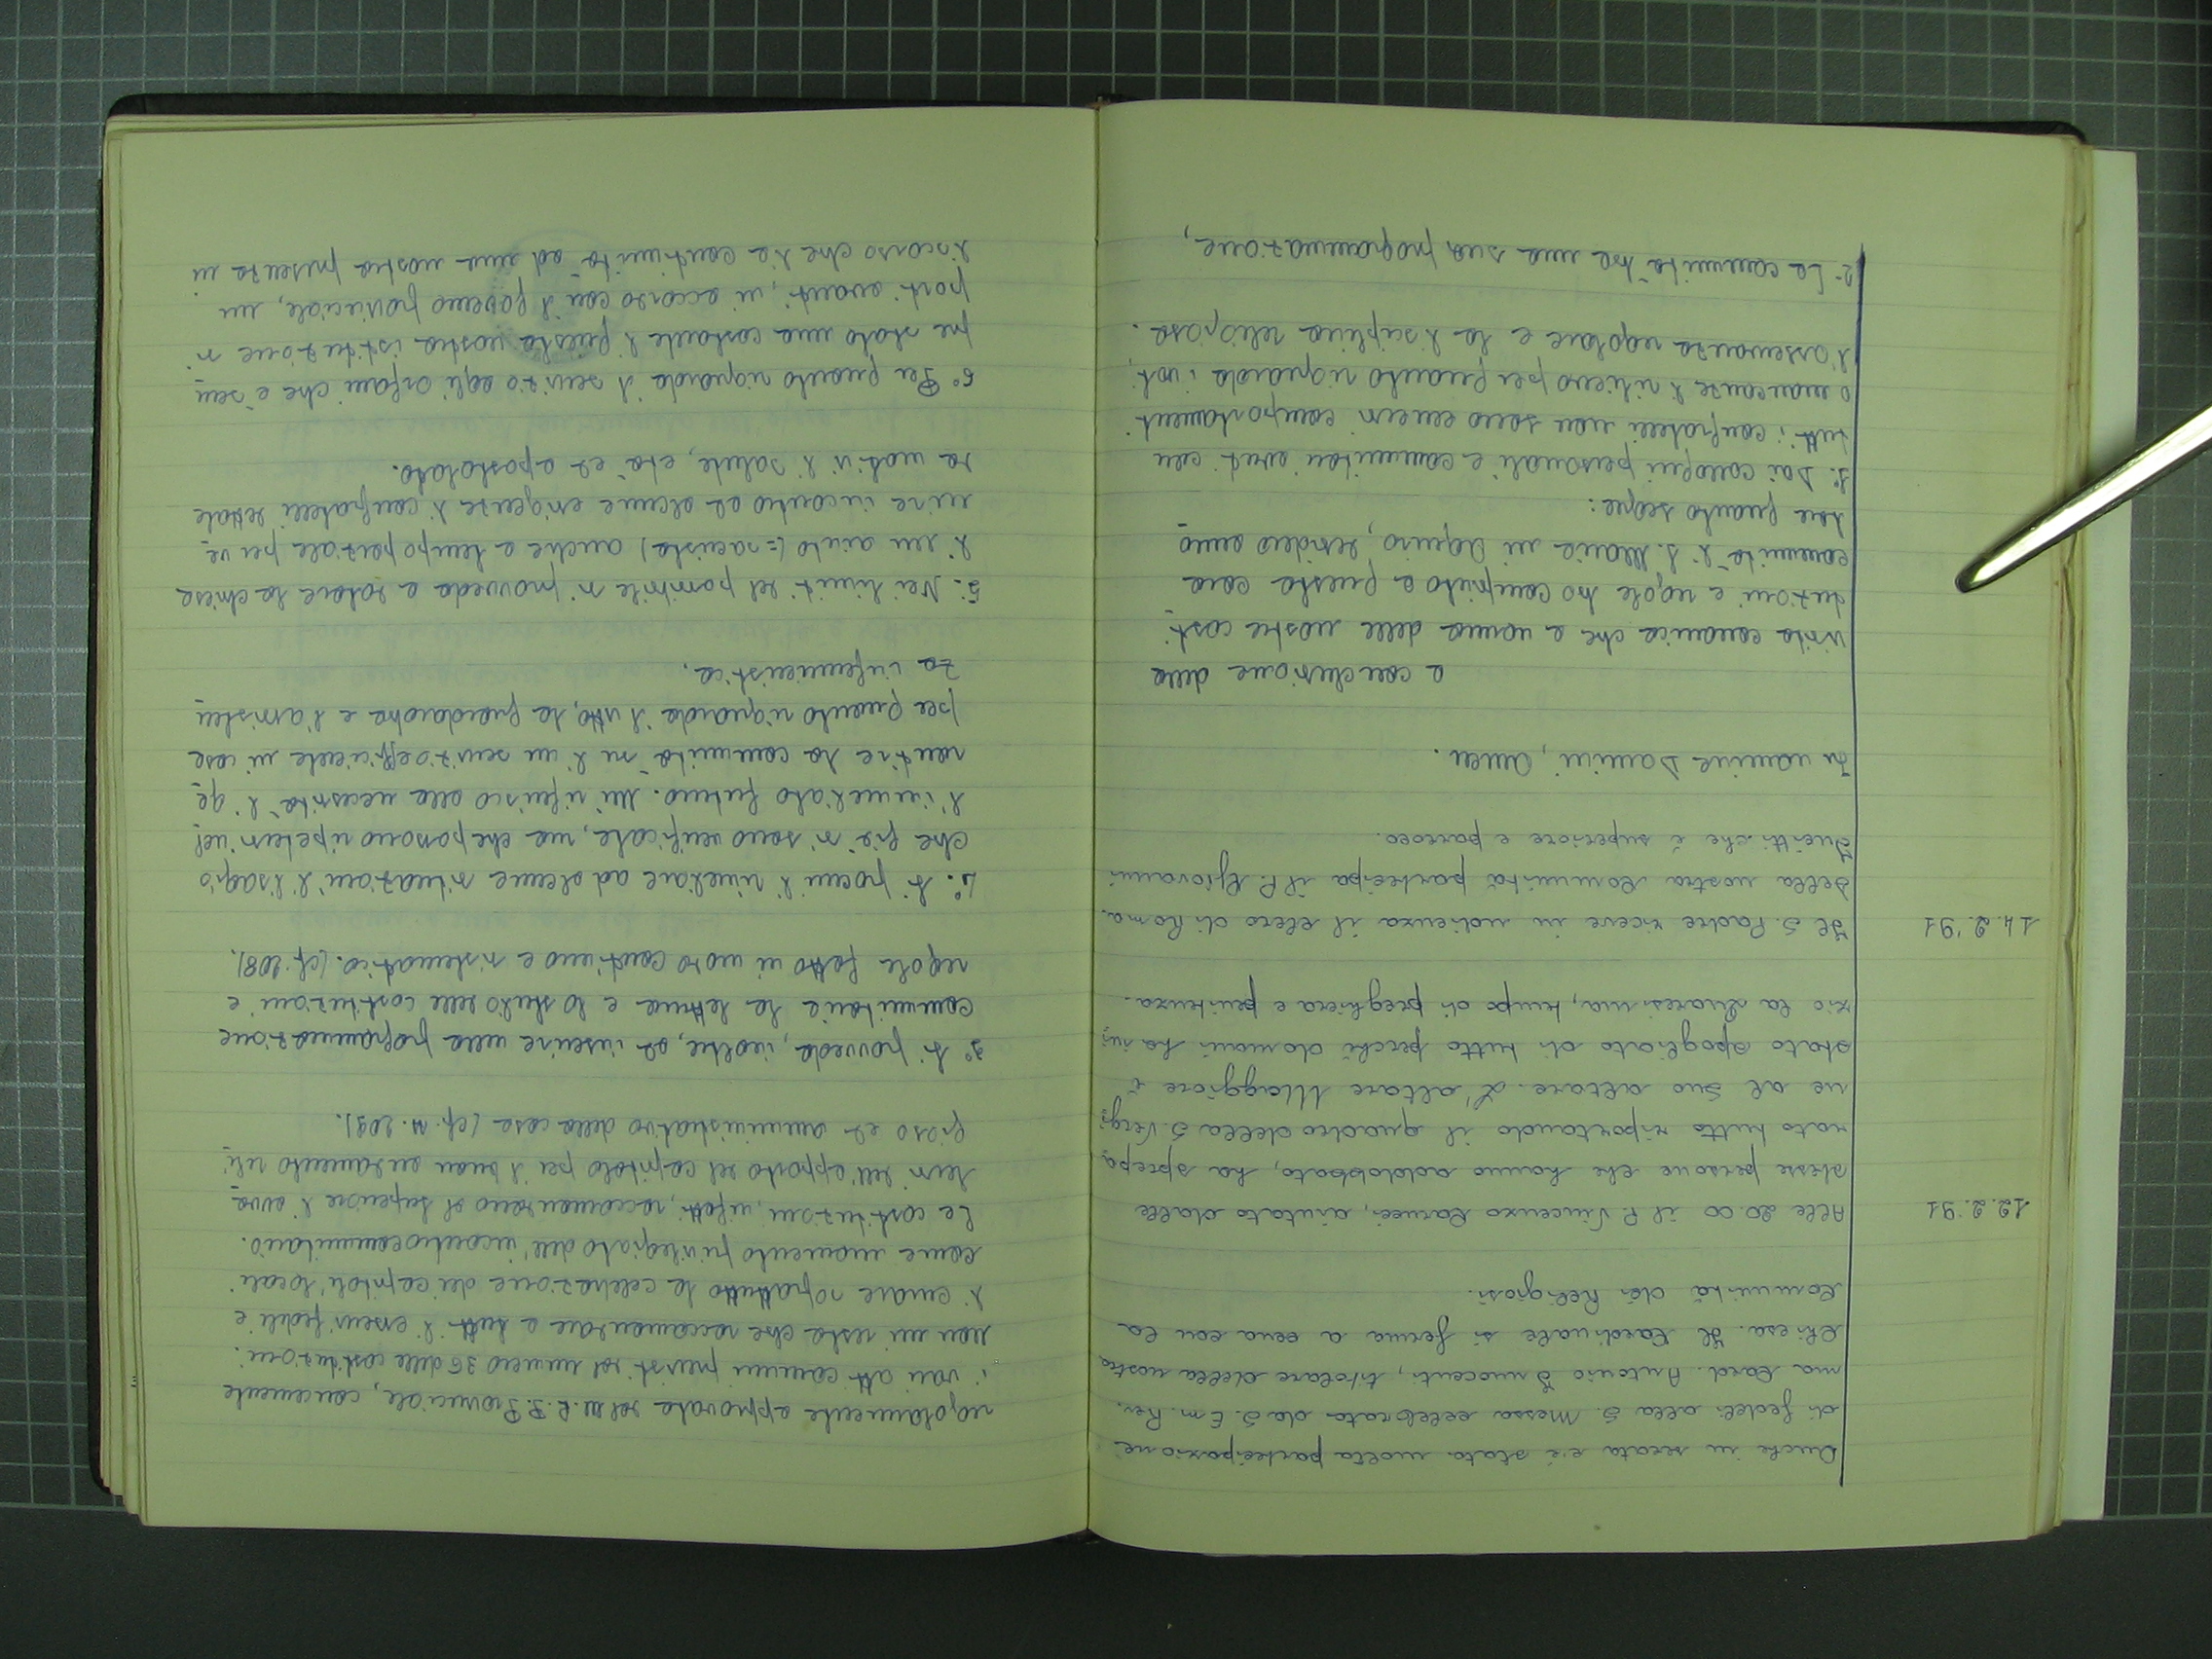 Anche in serata c'è stata molta partecipazione
di fedeli alla S. Messa celebrata da S. Em. Rev.
ma Card. Antonio Innocenti, titolare della nostra
Chiesa. Il Cardinale si ferma a cena con la
Comunità dei Religiosi.
12.2.'91 Alle 20.00 il P. Vincenzo Carucci, aiutato dalle
stesse persone che hanno addobbato, ha sprepa
rato tutto riportando il quadro della S. Vergi
ne al suo altare. L'altare Maggiore è
stato spogliato di tutto perché domani ha ini
zio la Quaresima, tempo di preghiera e penitenza.
14.2.'91 Il S. Padre riceve in udienza il clero di Roma.
Della nostra Comunità partecipa il P. Giovanni
che è superiore e parroco.
In nomine Domini, Amen.
a conclusione della
visita canonica che a norma delle nostre costi
tuzioni e regole ho compiuto a questa cara
comunità di S. Maria in Aquiro, desidero anno
tare quanto segue:
1° Dai colloqui personali e comunitari avuti con
tutti i confratelli non sono emersi comportamenti
o mancanze di rilievo per quanto riguarda i voti,
l'osservanza regolare e la disciplina religiosa.
2° La comunità ha una sua programmazione,
regolarmente approvata dal M.R.P. Provinciale, concernente
i vari atti comuni previsti dal numero 36 delle costituzioni.
Non mi resta che raccomandare a tutti di esservi fedeli e
di curare soprattutto la celebrazione dei capitoli locali
come momento privilegiato dell'incontro comunitario.
Le costituzioni, infatti, raccomandano al superiore di avva
lersi dell'apporto del capitolo per il buon andamento reli
gioso ed amministrativo della casa (cf. n. 209).
3° Si provveda, inoltre, ad inserire nella programmazione
comunitaria la lettura e lo studio delle costituzioni e
regole fatto in modo continuo e sistematico. (cf. 208).
4° Si procuri di rivelare ad alcune situazioni di disagio
che già si sono verificate, ma che possono ripetersi nel
l'immediato futuro. Mi riferisco alla necessità di ga
rantire la comunità su di un servizio efficiente in casa
per quanto riguarda il vitto, la guardaroba e l'assisten
za infermieristica.
5° Nei limiti del possibile si provveda a dotare la chiesa
di un aiuto (= sacrista) anche a tempo parziale per ve
nire incontro ad alcune esigenze di confratelli dettate
da motivi di salute, età ed apostolato.
6° Per quanto riguarda il servizio agli orfani che è sem
pre stato una costante di questa nostra istituzione si
porti avanti, in accordo con il governo provinciale, un
discorso che dia continuità ad una nostra presenza in